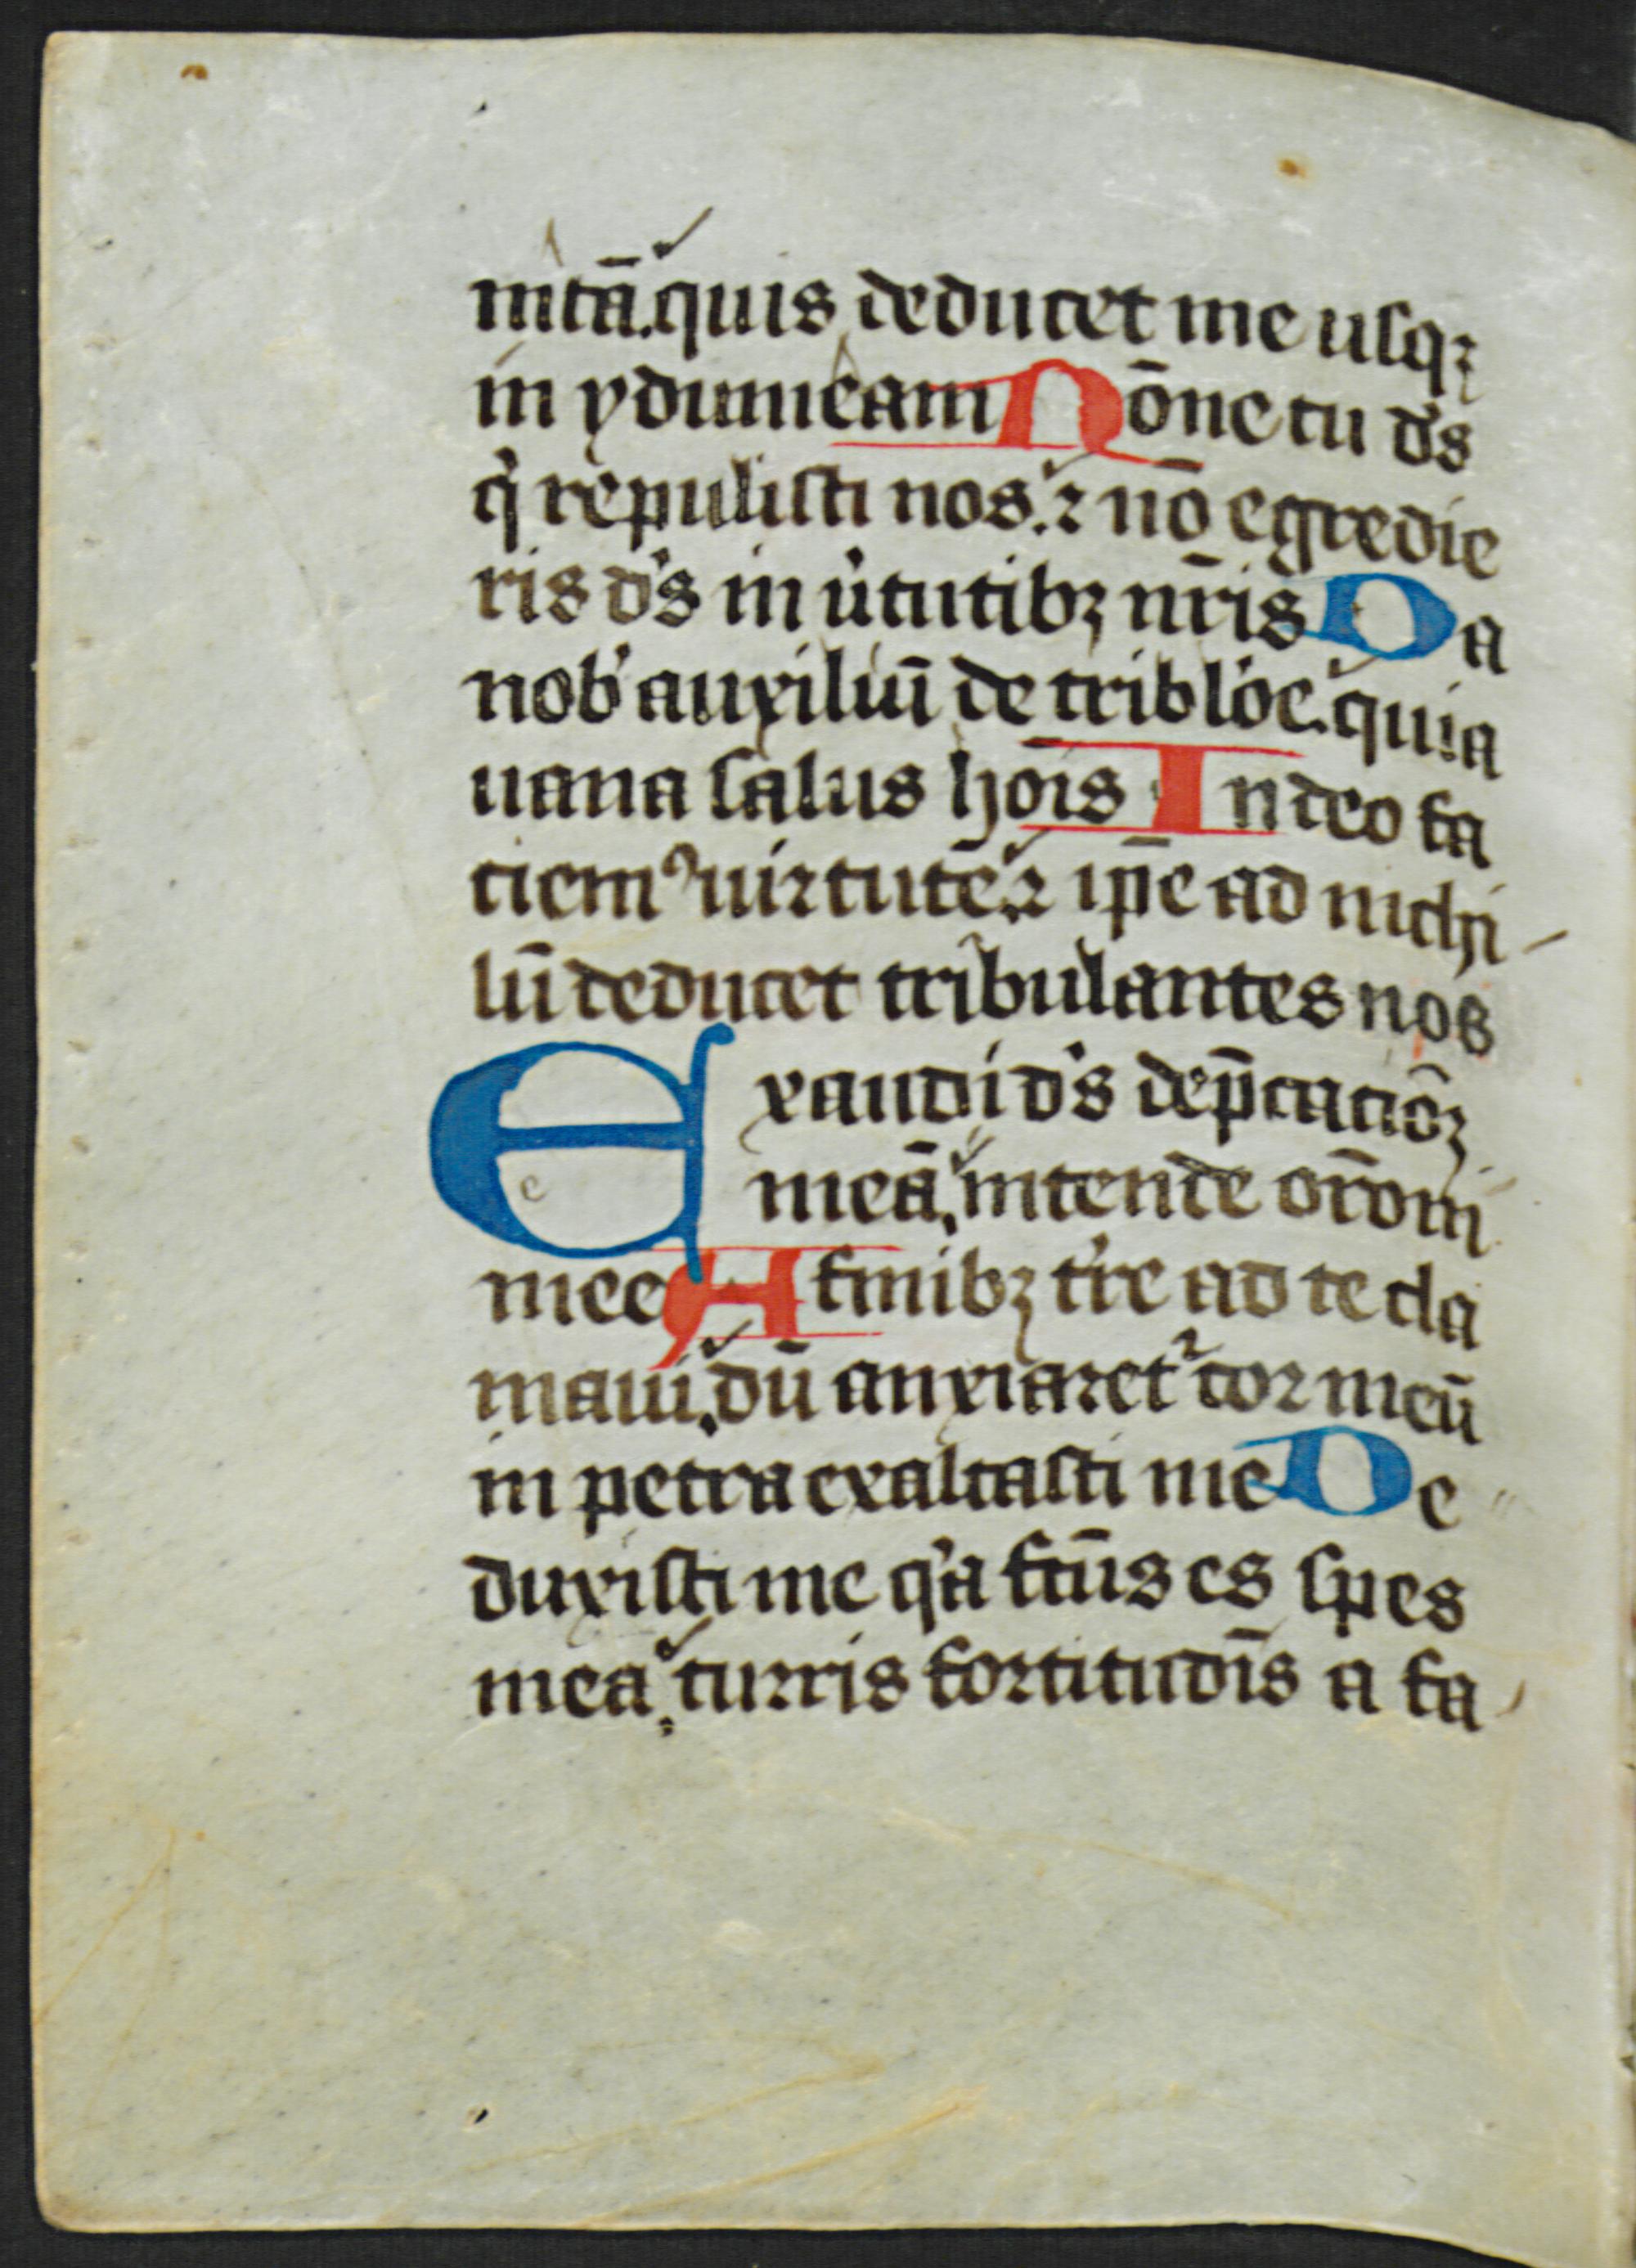 nitā. quis deducet me usqꝫ
in ydumeam Nōne tu dˢs
qͥ repulisti nos. ⁊ nō egredie
ris dˢs in u̓tutibꝫ nr̄is Da
nob̓ auxiliū de tribl̓oe. quia
uana salus hoīs In deo fa
ciemꝰ uirtutē. ⁊ ip̄e ad nichi
lū deducet tribulantes nos
Exaudi dˢs dep̄catiōꝫ
meā, intende or̄oni
mee A finibꝫ tr̓e ad te cla
maui, dū anxiaretᷣ cor meū
in petra exaltasti me De
duxisti me qͥa fc̄us es spes
mea, turris fortitudīs a fa